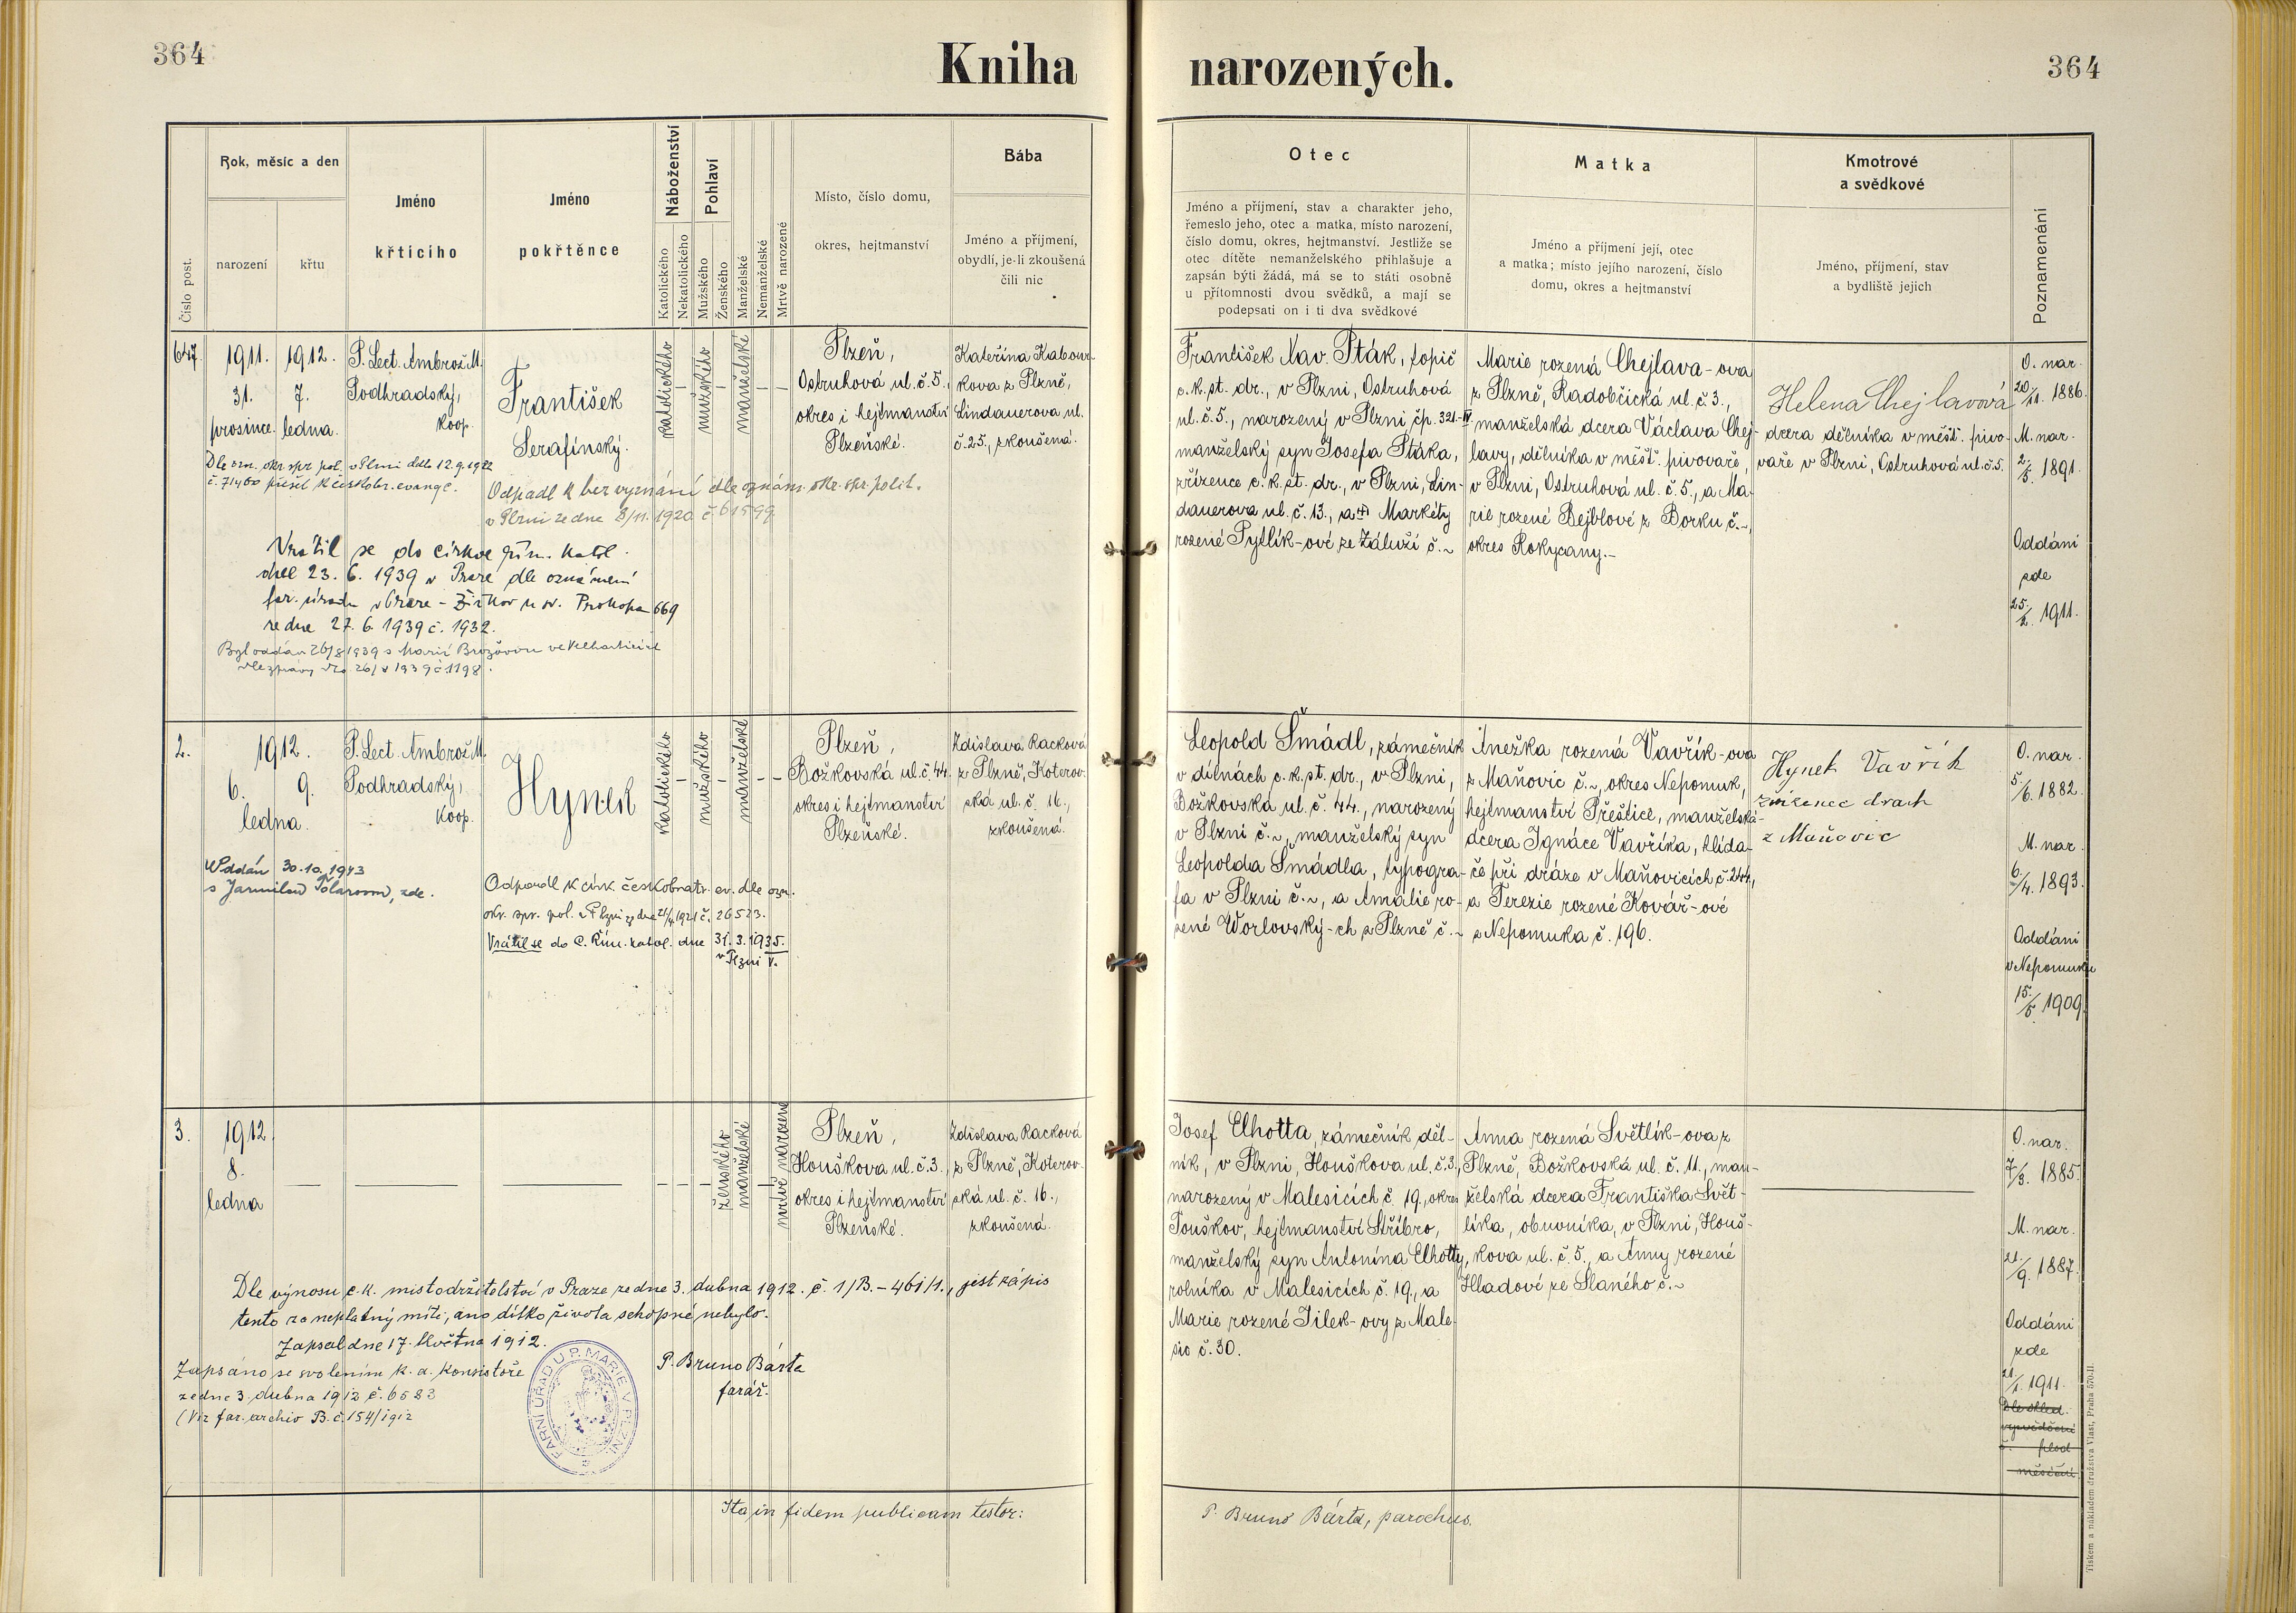 364
Kniha narozených.
364
Číslo post.
Rok, měsíc a den
narození
křtu
Jméno
křtícího
Jméno
pokřtěnce
Náboženství
Katolického
Nekatolického
Pohlaví
Mužského
Ženského
Manželské
Nemanželské
Mrtvě narozené
Místo, číslo domu,
okres, hejtmanství
Bába
Jméno a příjmení,
obydlí, je-li zkoušená
čili nic
Otec
Jméno a příjmení, stav a charakter jeho,
řemeslo jeho, otec a matka, místo narození,
číslo domu, okres, hejtmanství. Jestliže se
otec dítěte nemanželského přihlašuje a
zapsán býti žádá, má se to státi osobně
u přítomnosti dvou svědků, a mají se
podepsati on i ti dva svědkové
Matka
Jméno a příjmení její, otec
a matka; místo jejího narození, číslo
domu, okres a hejtmanství
Kmotrové
a svědkové
Jméno, příjmení, stav
a bydliště jejich
Poznamenání
647.
1911.
31.
prosince.
1912.
7.
ledna.
P. Lect. Ambrož M.
Podhradský,
koop.
František
Serafínský.
katolického
mužského
manželské
Plzeň,
Ostruhová ul. č. 5.,
okres i hejtmanství
Plzeňské.
Kateřina
kova z Plzně,
Lindauerova ul.
č. 25., zkoušená.
František Xav. Pták, topič
c. k. st. dr., v Plzni, Ostruhová
ul. č. 5., narozený v Plzni čp. 321.-IV
manželský syn Josefa Ptáka,
zřízence c. k. st. dr., v Plzni, Lin-
dauerova ul. č. 13., a Markéty
rozené Pytlík-ové ze Záluží č. ~
Marie rozená Chejlava-ova
z Plzně, Radobčická ul. č. 3.,
manželská dcera Václava Chej-
lavy, dělníka v měšť. pivovaře,
v Plzni, Ostruhová ul. č. 5., a Ma-
rie rozené Bejblové z Borku č. ~,
okres Rokycany.-
Helena Chejlavová
dcera dělníka v měšť. pivo-
vaře v Plzni, Ostruhová ul. č. 5.
O. nar.
20/11. 1886.
M. nar.
2/5. 1891.
Oddáni
zde
25./2. 1911.
Dle ozn. okr. spr. pol. v Plzni ddto 12.9.1922
č. 71400 přešel k českobr. evang. c.
Odpadl k bez vyznání dle oznám. okr. spr. polit.
v Plzni ze dne 8/11. 1920 č 61599
Vrátil se do církve řím. katol.
dne 23. 6. 1939 v Praze dle oznámení
far. úřadu v Praze - Žižkov u sv. Prokopa 669
ze dne 27. 6. 1939 č. 1932.
Byl oddán 26/8 1939 s Marií Brožovou ve Velharticích
dle zprávy 1939 č. 1198.
2.
1912.
6. 9.
ledna.
P. Lect. Ambrož M.
Podhradský,
koop.
Hynek
katolického
mužského
manželské
Plzeň,
Božkovská ul. č. 44.
okres i hejtmanství
Plzeňské.
Zdislava Racková
z Plzně, Koterov-
ská ul. č. 16.,
zkoušená.
Leopold Šmádl, zámečník
v dílnách c. k. st. dr., v Plzni,
Božkovská ul. č. 44., narozený
v Plzni č. ~, manželský syn
Leopolda Šmádla, typogra-
fa v Plzni č. ~, a Amalie ro-
zené Worlovský-ch z Plzně č. ~
Anežka rozená Vavřík-ova
z Maňovic č. ~, okres Nepomuk,
hejtmanství Přeštice, manželská
dcera Ignáce Vavříka, hlída-
če při dráze v Maňovicích č. 244,
a Terezie rozené Kovář-ové
z Nepomuka č. 196.
Hynek Vavřík
zřízenec drach
z Maňovic
O. nar.
5./6. 1882.
M. nar.
6./4. 1893.
Oddáni
v Nepomuku
15./5. 1909.
Oddán 30.10.1943
s Jarmilou, zde.
Odpadl k církv. českobratr. ev. dle ozn.
okr. spr. pol. v Plzni ze dne 21/4 1921 č. 26523.
Vrátil se do C. Řím. katol. dne 31. 3. 1935.
v Plzni V.
3.
1912
8.
ledna
ženského
manželské
mrtvě narozené
Plzeň,
Houškova ul. č. 3.,
okres i hejtmanství
Plzeňské.
Zdislava Racková
z Plzně, Koterov-
ská ul. č. 16.,
zkoušená.
Josef Elhotta, zámečník děl-
ník, v Plzni, Houškova ul. č. 3,
narozený v Malesicích č. 19., okres
Touškov, hejtmanství Stříbro,
manželský syn Antonína Elhotty,
rolníka v Malesicích č. 19., a
Marie rozené Jílek-ovy z Male-
sic č. 30.
Anna rozená Světlík-ova z
Plzně, Božkovská ul. č. 11., man-
želská dcera Františka Svět-
líka, obuvníka, v Plzni, Houš-
kova ul. č. 5., a Anny rozené
Hladové ze Slaného č. ~
O. nar.
7/3. 1885.
M. nar.
21./9. 1887.
Oddáni
zde
21/1. 1911.
Dle ohled.
vysvědčení
č. plod
měsíční
Dle výnosu c. k. místodržitelství v Praze ze dne 3. dubna 1912. č. 1/B. - 461/1., jest zápis
tento za neplatný míti, ano dítko života schopné nebylo.
Zapsal dne 17. května 1912.
Zapsáno se svolením k. a. konsistoře
ze dne 3. dubna 1912 č. 6583
(Viz far. archiv B. č. 154/1912
P. Bruno Bárta
farář.
FARNÍ ÚŘAD U P. MARIE V PLZNI
Ita in fidem publicam testor:
P. Bruno Bárta, parochus.
Tiskem a nákladem družstva Vlast, Praha 570-II.